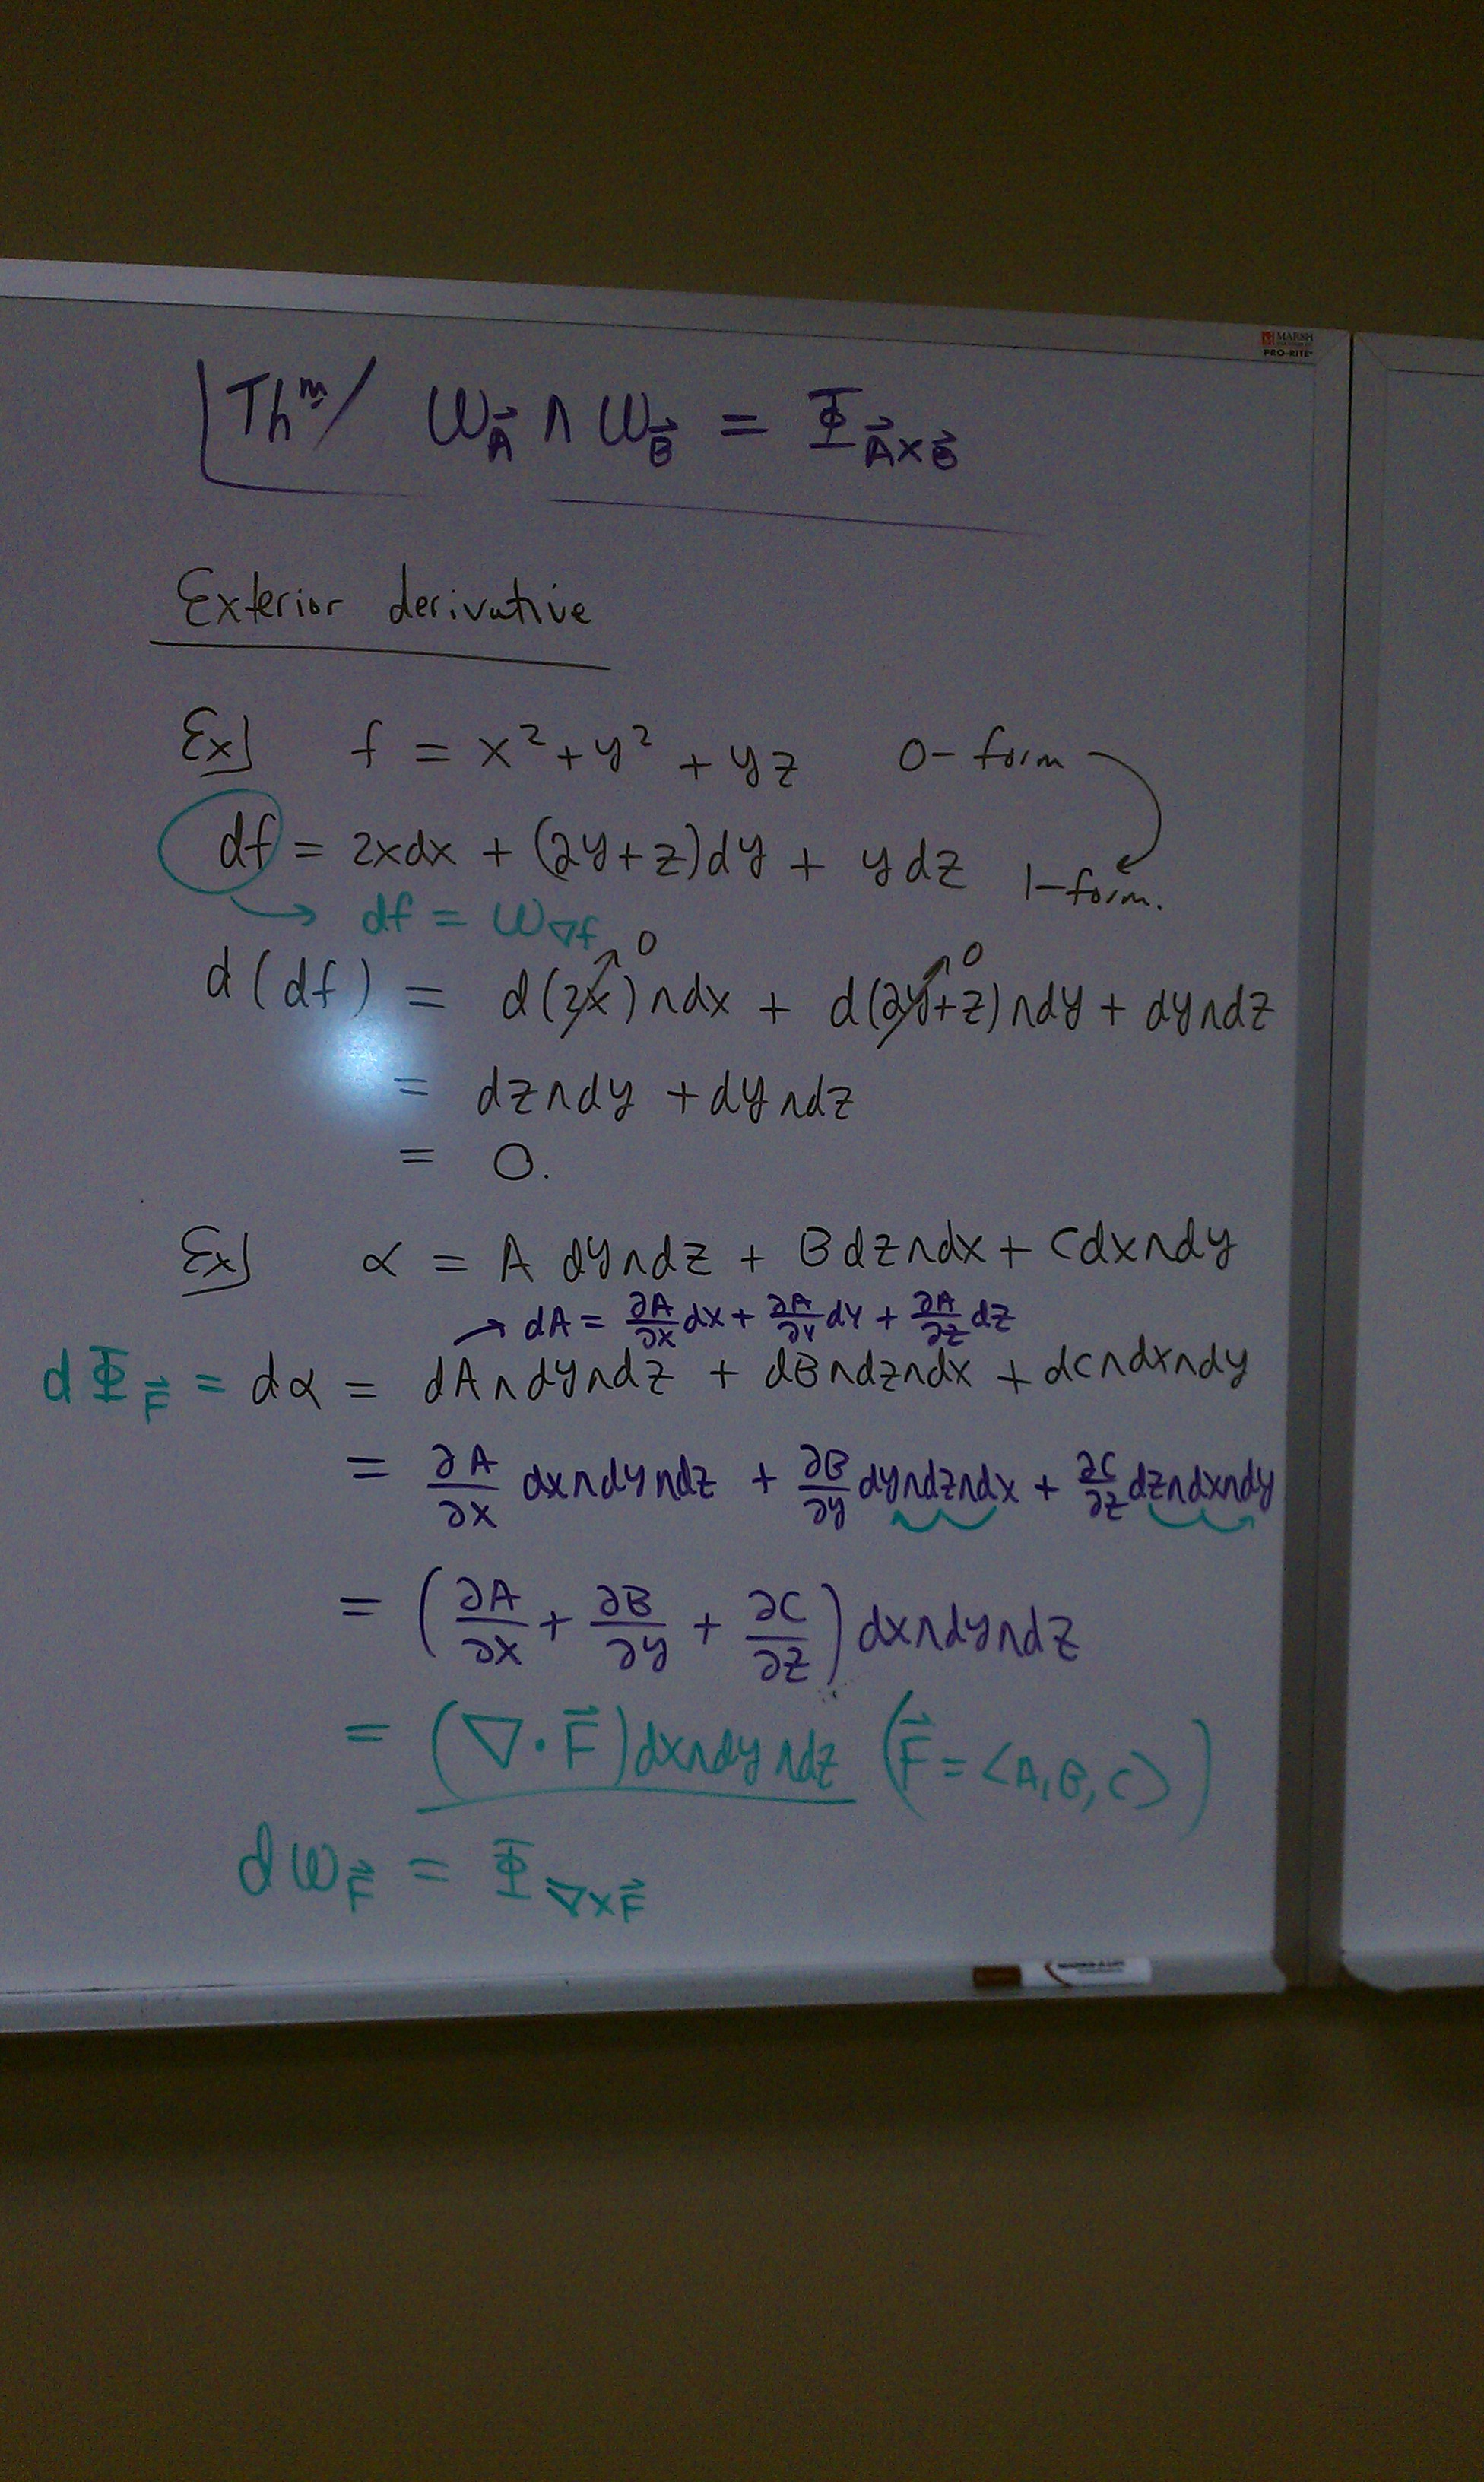 MARSH
PRO-RITE
Thᵐ/ ω_A⃗ ∧ ω_B⃗ = Φ_A⃗×B⃗
Exterior derivative
Ex] f = x² + y² + yz 0-form
df = 2xdx + (2y+z)dy + ydz 1-form.
→ df = ω_∇f
d(df) = d(2x)∧dx + d(2y+z)∧dy + dy∧dz
0 0
= dz∧dy + dy∧dz
= 0.
Ex] α = A dy∧dz + B dz∧dx + C dx∧dy
→ dA = ∂A/∂x dx + ∂A/∂y dy + ∂A/∂z dz
dΦ_F⃗ = dα = dA∧dy∧dz + dB∧dz∧dx + dC∧dx∧dy
= ∂A/∂x dx∧dy∧dz + ∂B/∂y dy∧dz∧dx + ∂C/∂z dz∧dx∧dy
= (∂A/∂x + ∂B/∂y + ∂C/∂z) dx∧dy∧dz
= (∇·F⃗)dx∧dy∧dz (F⃗ = <A, B, C>)
dω_F⃗ = Φ_∇×F⃗